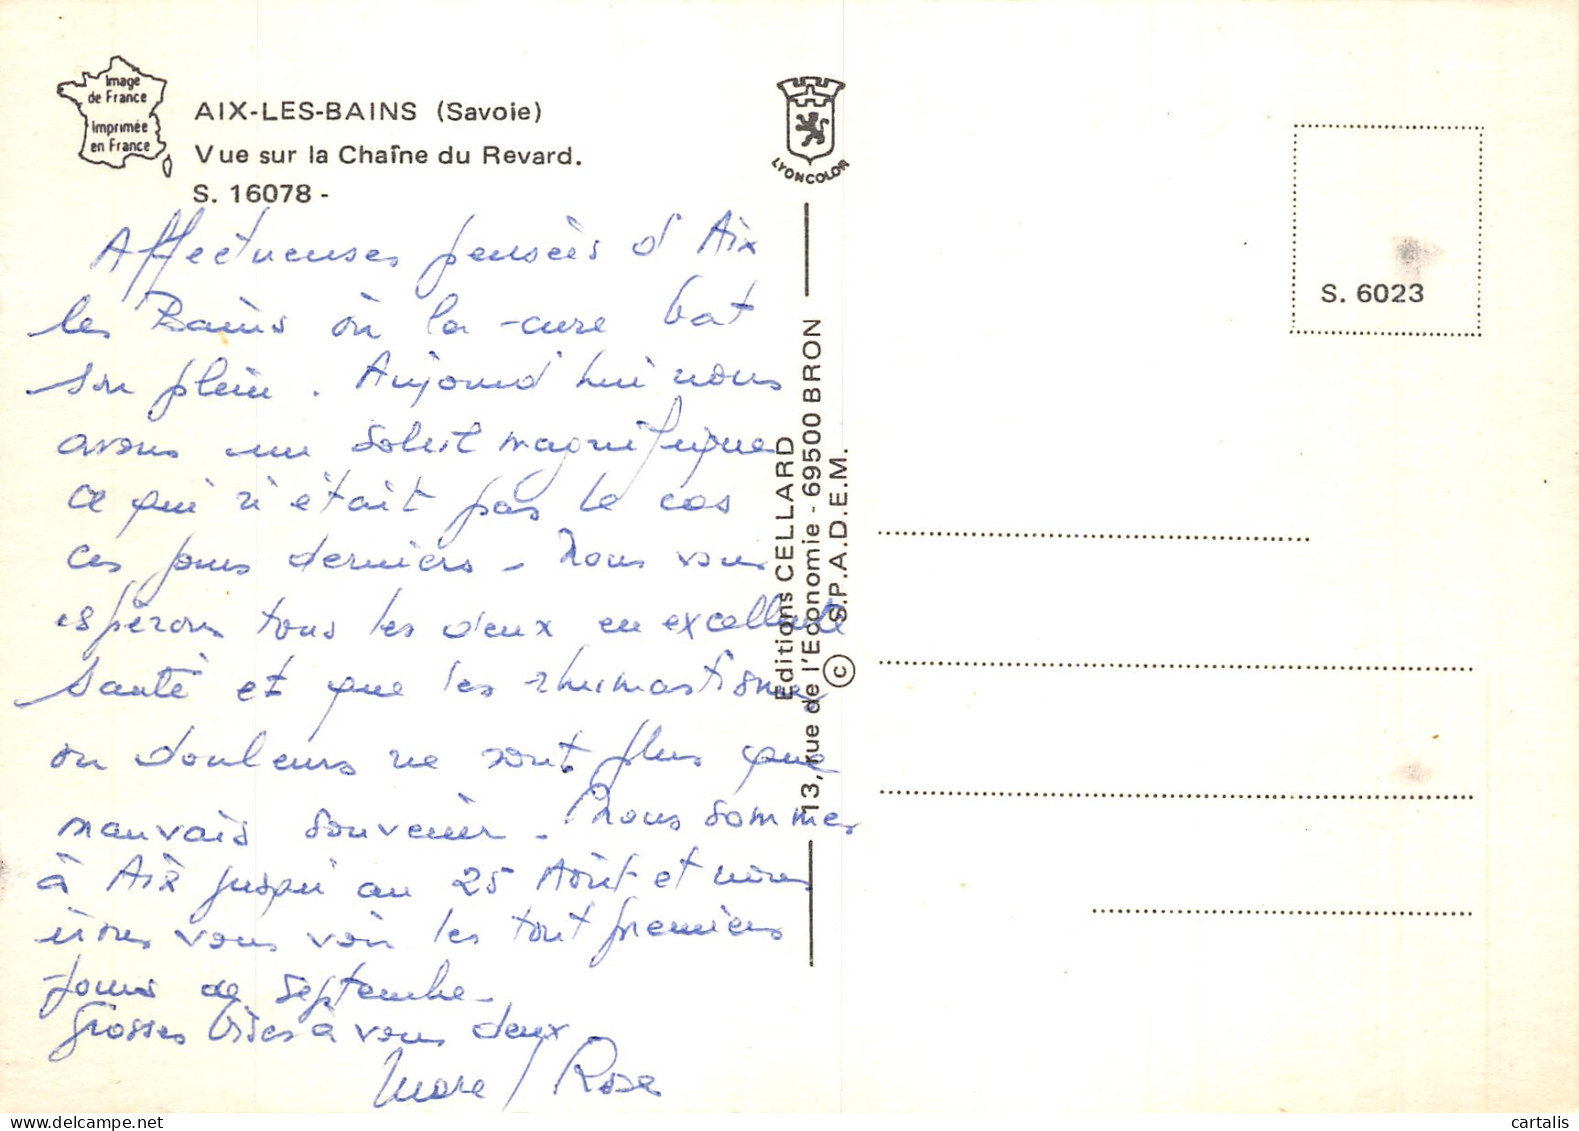 Image
de France
Imprimée
en France
AIX-LES-BAINS (Savoie)
Vue sur la Chaîne du Revard.
S. 16078 -
Affectueuses pensées d'Aix
les Bains où la cure bat
son plein. Aujourd'hui nous
avons un soleil magnifique
ce qui n'était pas le cas
ces jours derniers - Nous vous
espérons tous les deux en excellente
santé et que les rhumastismes
ou douleurs ne sont plus que
mauvais souvenir - Nous sommes
à Aix jusqu'au 25 Août et nous
irons vous voir les tout premiers
jours de septembre -
Grosses bises à vous deux -
Rose
LYONCOLOR
Editions CELLARD
13, rue de l'Economie - 69500 BRON
© S.P.A.D.E.M.
S. 6023
delcampe.net
cartalis